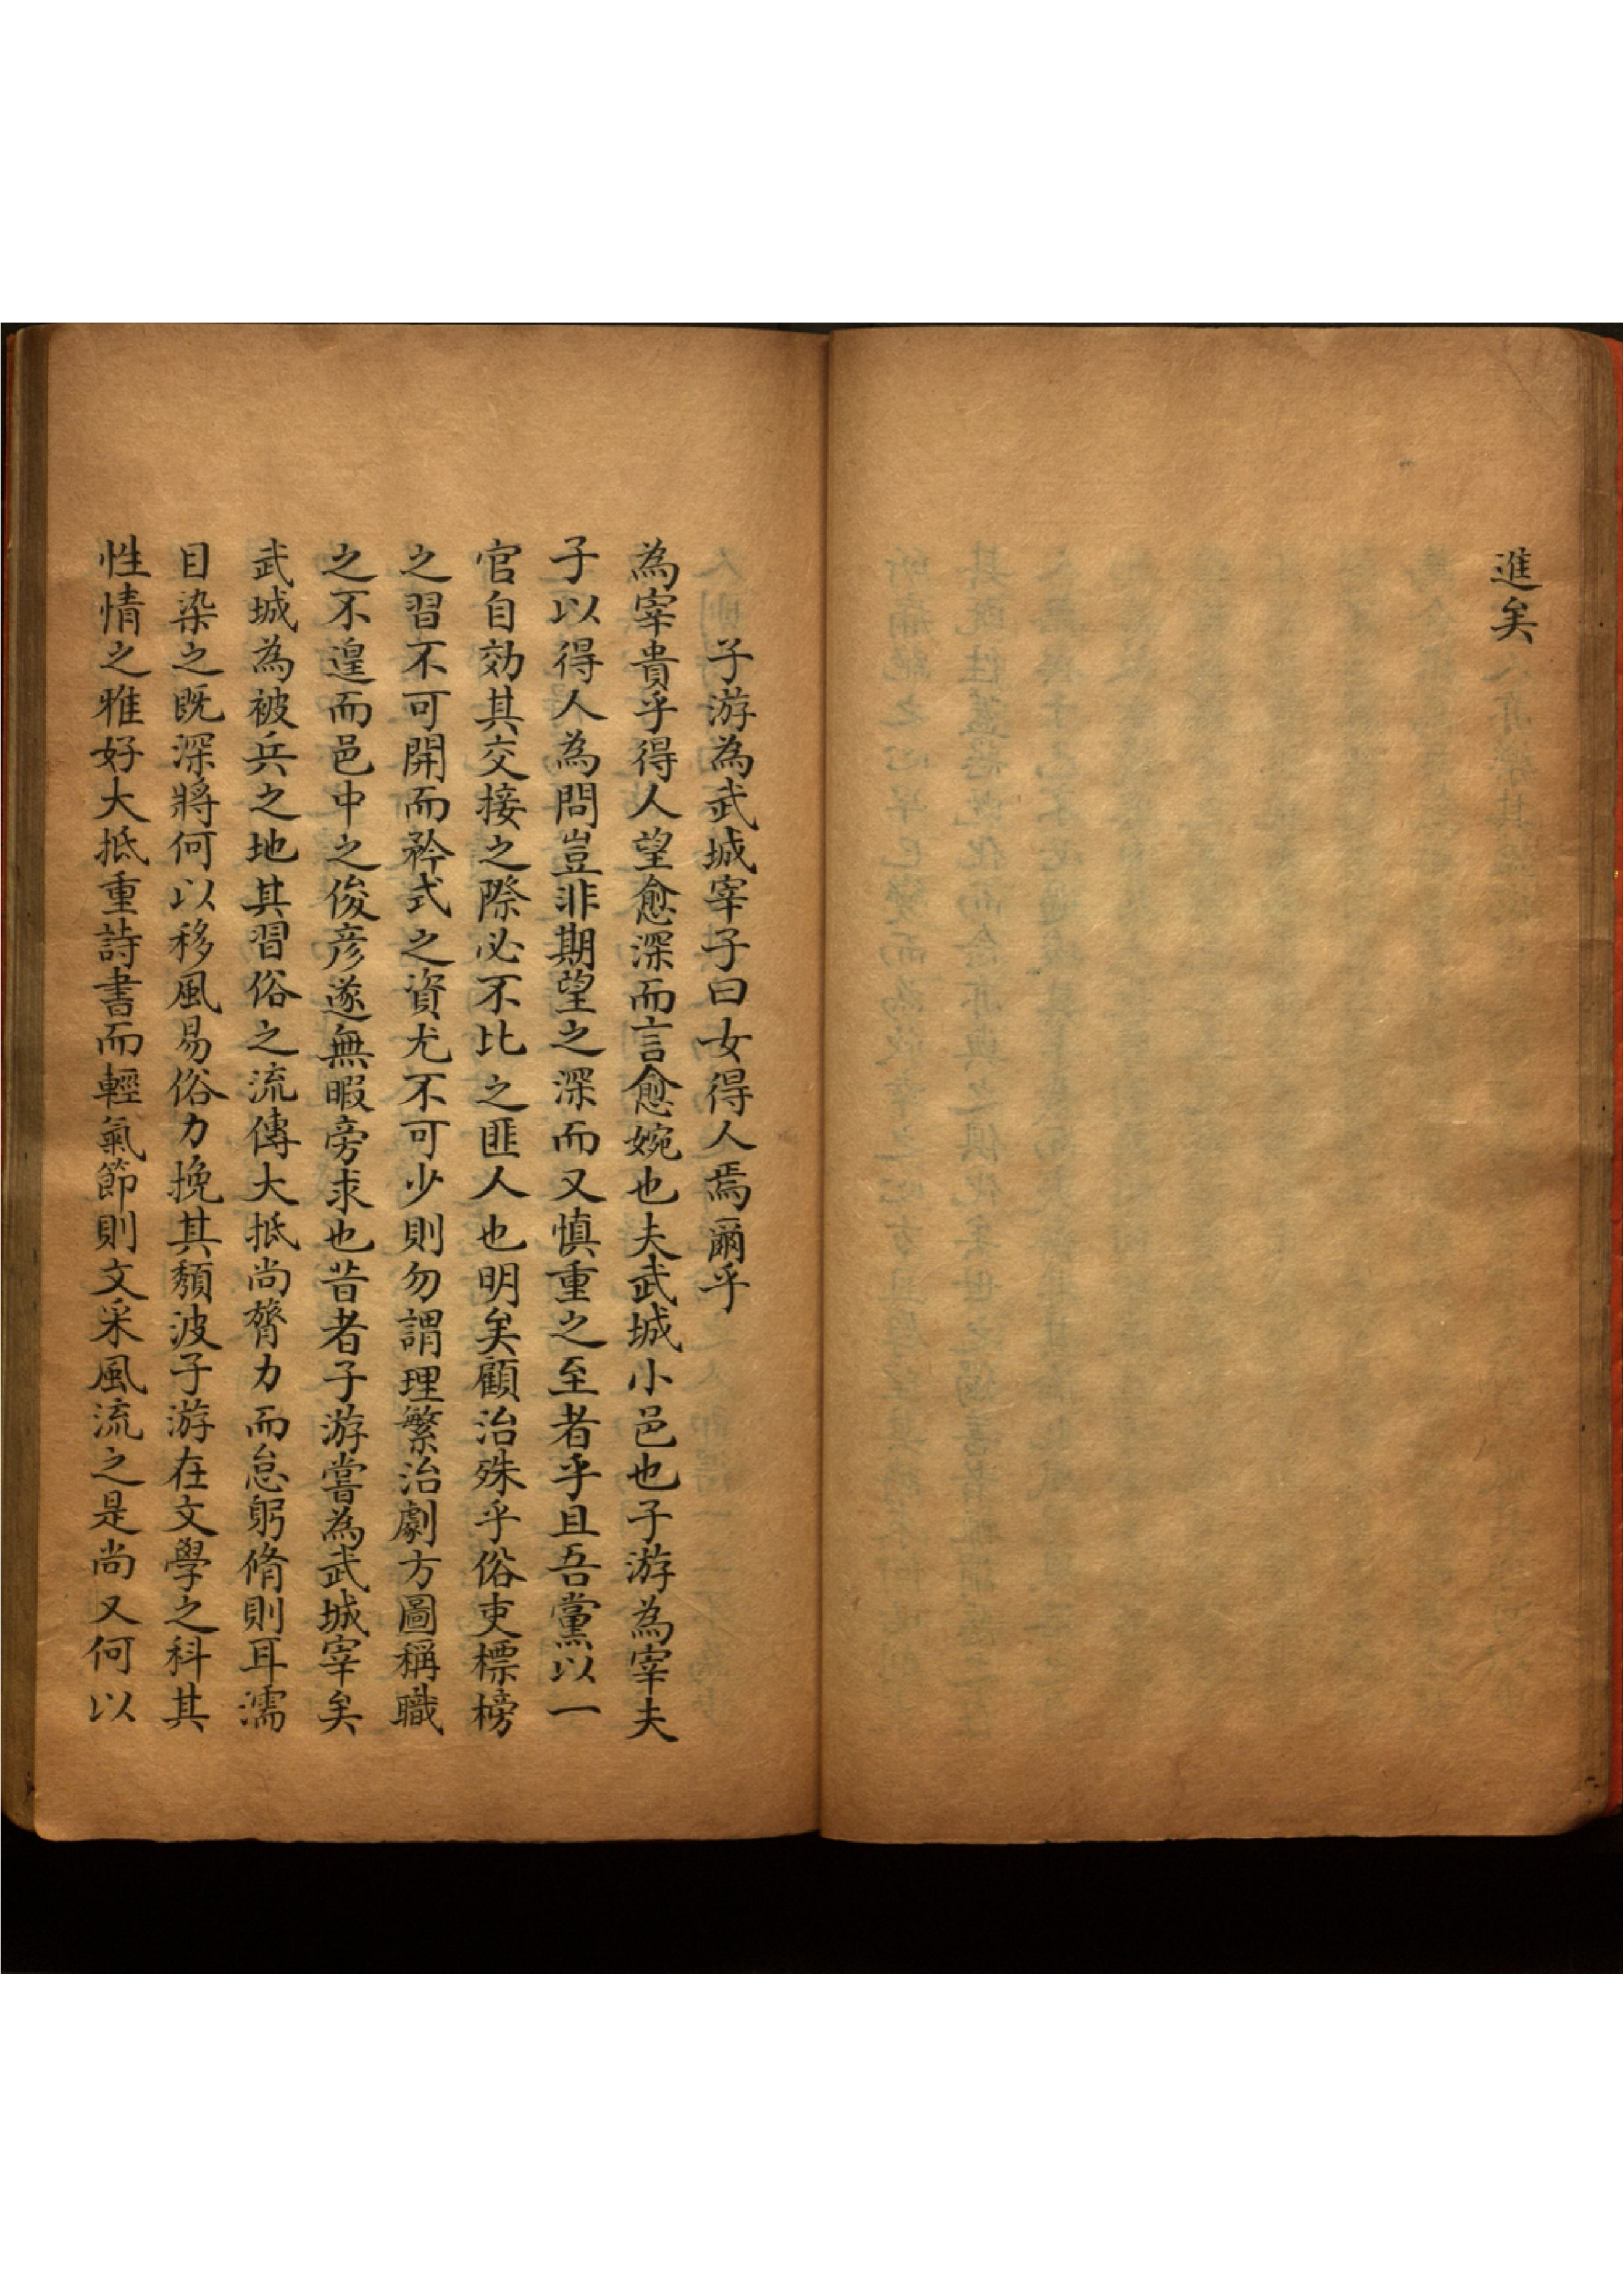 進矣
子游為武城宰子曰女得人焉爾乎
為宰貴乎得人望愈深而言愈婉也夫武城小邑也子游為宰夫
子以得人為問豈非期望之深而又慎重之至者乎且吾黨以一
官自効其交接之際必不比之匪人也明矣顧治殊乎俗吏標榜
之習不可開而矜式之資尤不可少則勿謂理繁治劇方圖稱職
之不遑而邑中之俊彦遂無暇旁求也昔者子游嘗為武城宰矣
武城為被兵之地其習俗之流傳大抵尚膂力而怠躬脩則耳濡
目染之既深將何以移風易俗力挽其頹波子游在文學之科其
性情之雅好大抵重詩書而輕氣節則文采風流之是尚又何以